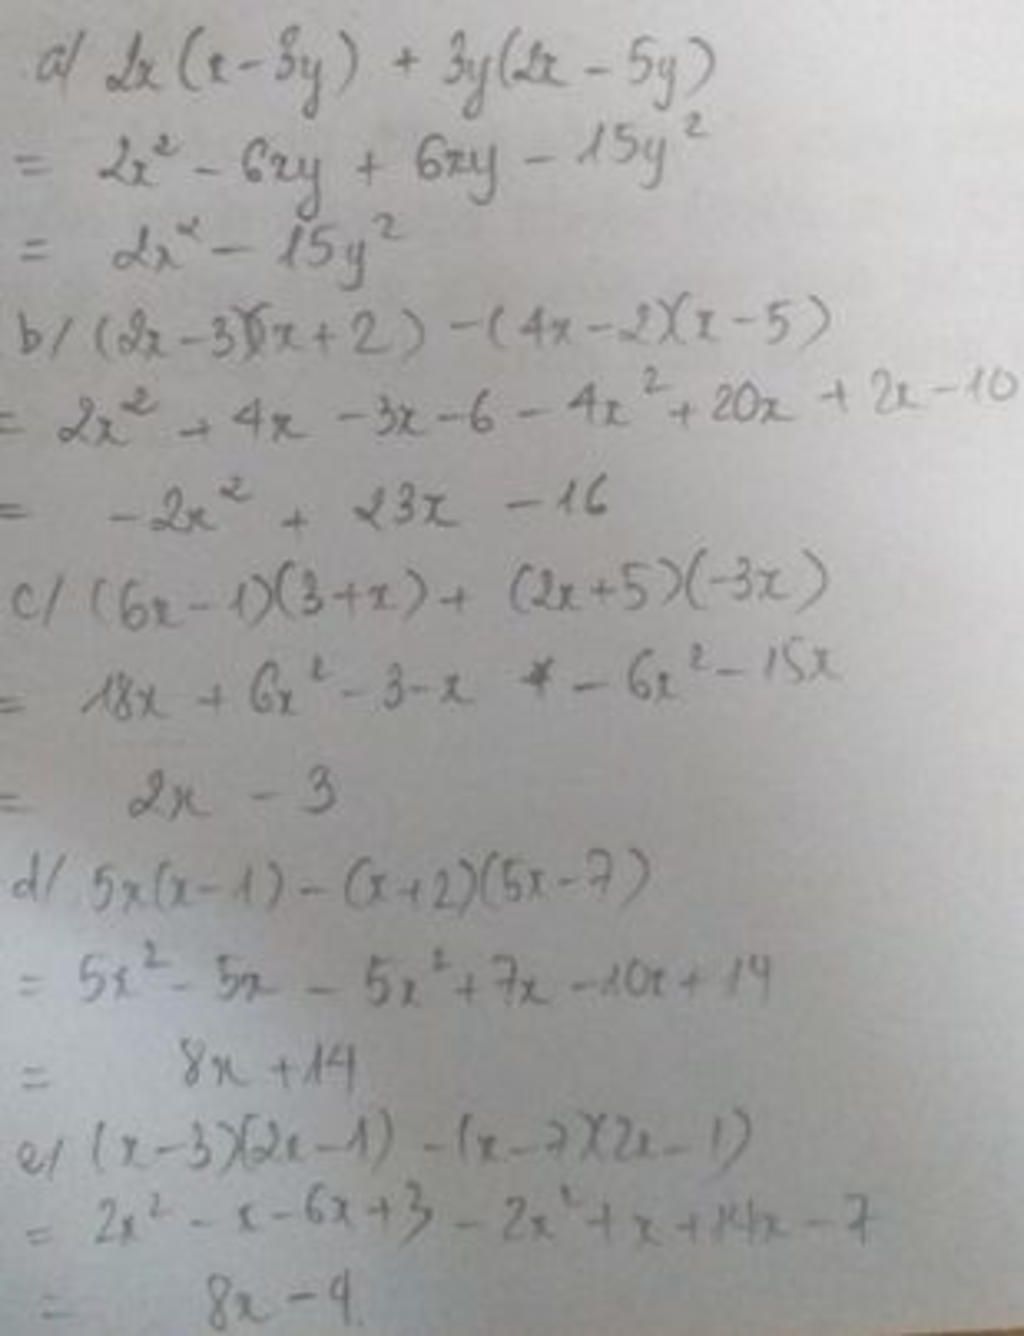 a/ 2x(x-3y) + 3y(2x - 5y)
= 2x² - 6xy + 6xy - 15y²
= 2x² - 15y²
b/ (2x-3)(x+2) -(4x-2)(x-5)
= 2x² + 4x -3x-6 - 4x² + 20x + 2x-10
= -2x² + 23x -16
c/ (6x-1)(3+x) + (2x+5)(-3x)
= 18x + 6x² - 3-x - 6x² - 15x
= 2x - 3
d/ 5x(x-1) - (x+2)(5x-7)
= 5x² - 5x - 5x² + 7x -10x + 14
= 8x +14
e/ (x-3)(2x-1) -(x-7)(2x-1)
= 2x² - x - 6x + 3 - 2x² + x + 14x - 7
= 8x - 4